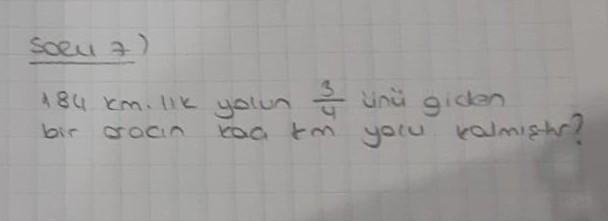 Soru 7)
184 km.lik yolun 3/4 ünü giden
bir aracın kaç km yolu kalmıştır?